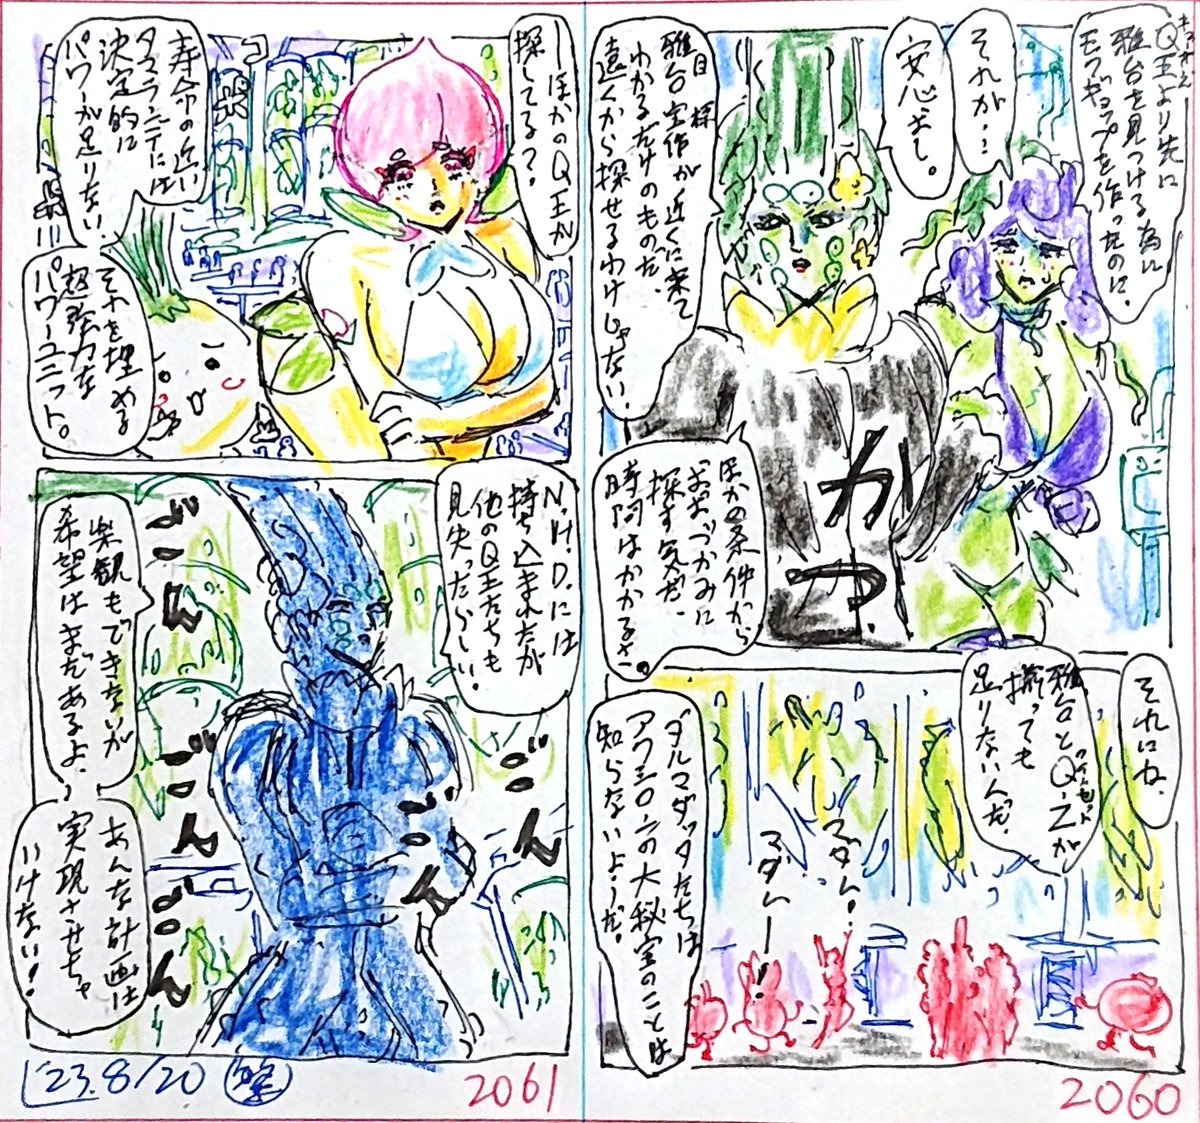 Q王より先に
雅台を見つける為に
モブギョップを作ったのに。
それが…
安心よし。
雅台宝作が近くに来て
わかるだけのものだ。
遠くから探せるわけじゃない。
ほかの条件から
おおづかみに
探す気だ。
時間はかかるさ。
かつ
それにね、
雅台とQ-Zが
揃っても
足りないんだ。
マダム!
マダムー
ダルマダッタたちは
アワミ〇六の大秘宝のことは
知らないよーだ。
2060
ーほかのQ王が
探してる?
寿命の近い
タマランテには
決定的に
パワーが足りない。
それを埋める
超強力な
パワーユニット。
N.H.D.には
持ち込まれたが
他のQ王たちも
見失ったらしい。
楽観もできないが
希望はまだあるよ、
あんな計画は
実現させちゃ
いけない!
'23.8/20
2061